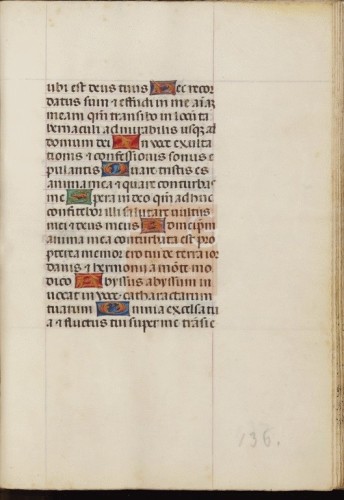 ubi est deus tuus Hec recor
datus sum & effudi in me aīaꝫ
meam qm̄ transibo in locū ta
bernaculi admirabilis usqꝫ ad
domum dei In voce exulta
tionis & confessionis sonus e
pulantis Quare tristis es
anima mea & quare conturbas
me Spera in deo qm̄ adhuc
confitebor illi salutare vultus
mei & deus meus Ad me ipm̄
anima mea conturbata est pro
pterea memor ero tui de terra ior
danis & hermonij a mōte mo
dico Abyssus abyssum in
uocat in voce catharactarum
tuarum Omnia excelsa tu
a & fluctus tui super me trāsie
136.